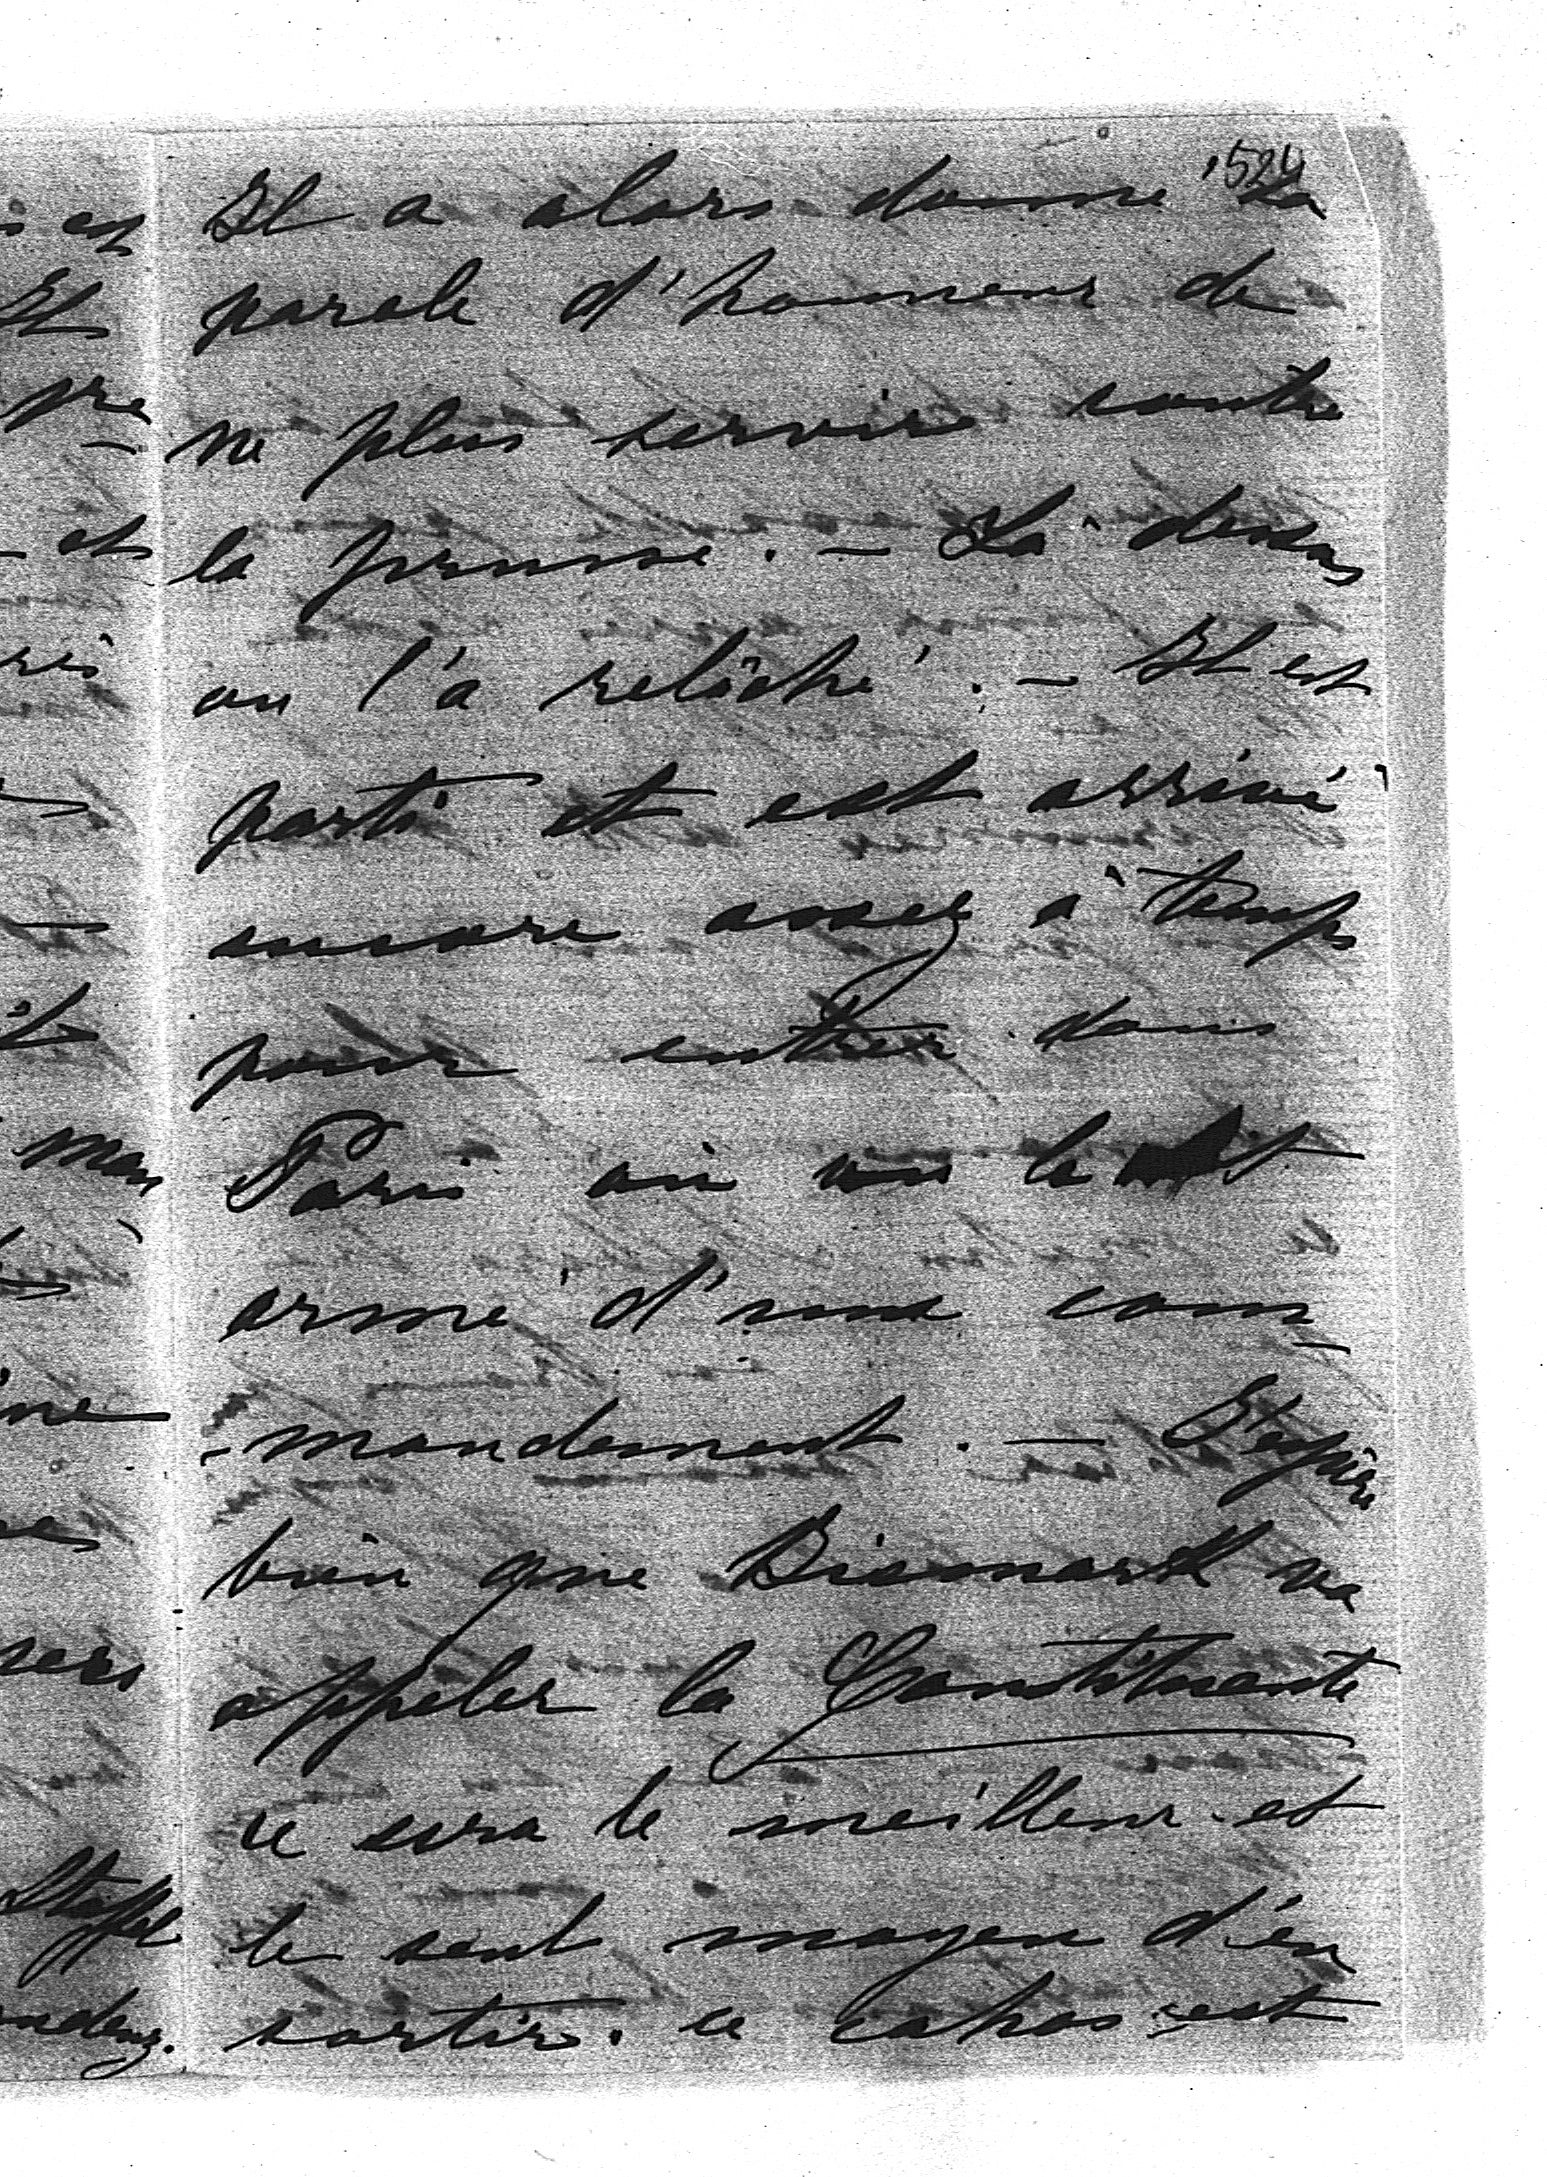 524
Il a alors donné sa
parole d'honneur de
ne plus servire contre
la prusse. - Là dessus
on l'a relâché. - Il est
parti et est arrivé
encore assez à temps
pour entrer dans
Paris où on le
armé d'une com-
-mandement. - J'espère
bien que Bismark va
appeler la Constituante
ce sera le meilleur et
le seul moyen d'en
sortir. ce cahos est